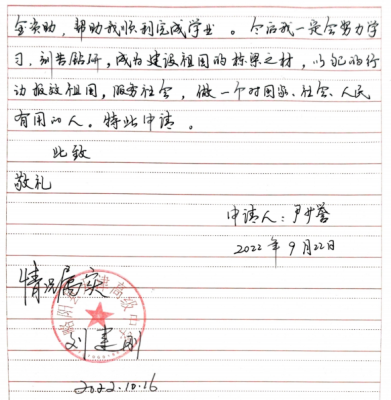 金资助，帮助我顺利完成学业。今后我一定会努力学
习，刻苦钻研，成为建设祖国的栋梁之材，以己的行
动报效祖国，服务社会，做一个对国家、社会、人民
有用的人。特此申请。
此致
敬礼
申请人：尹誉
2022年9月22日
情况属实
高级中
刘建刚
2022.10.16